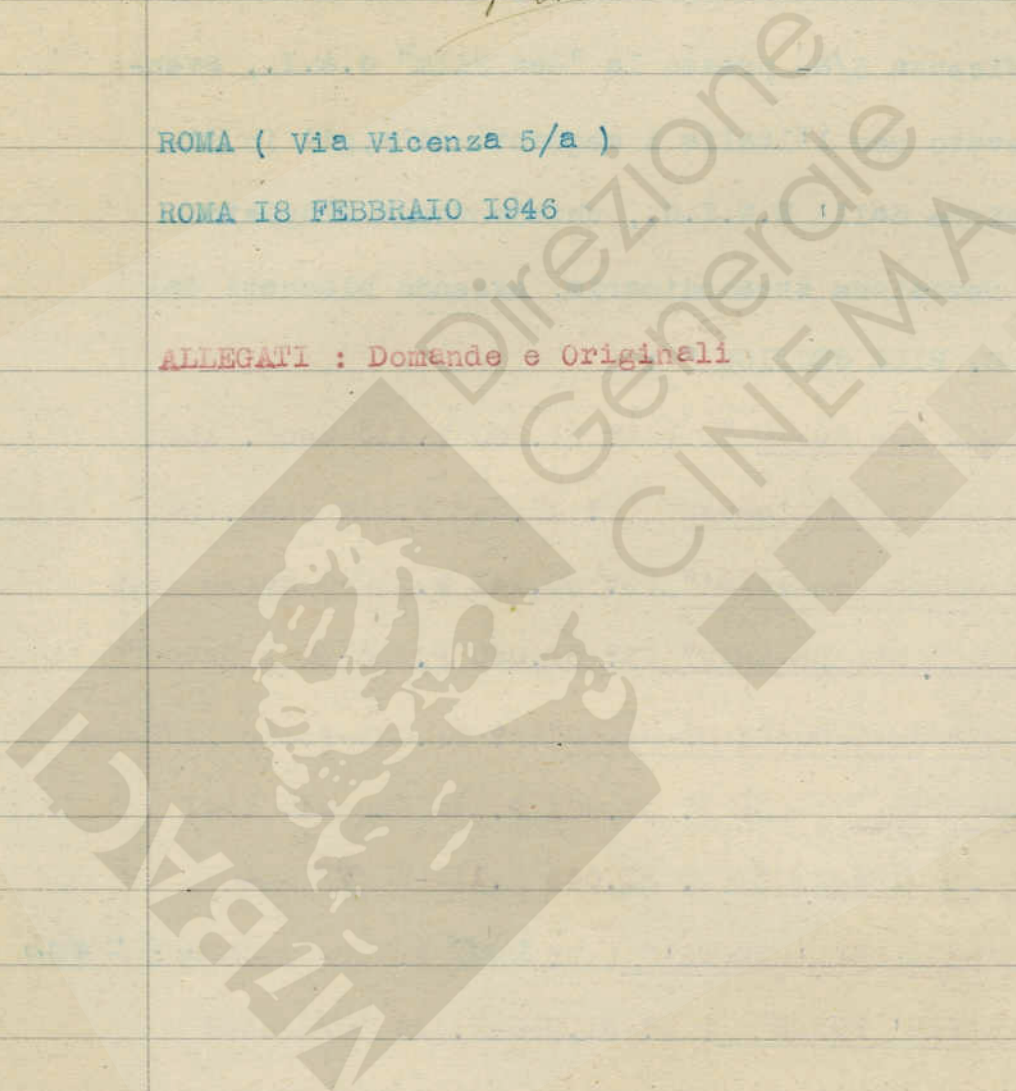 ROMA ( Via Vicenza 5/a )
ROMA I8 FEBBRAIO I946
ALLEGATI : Domande e Originali
Direzione
Generale
CINEMA
MiBACI